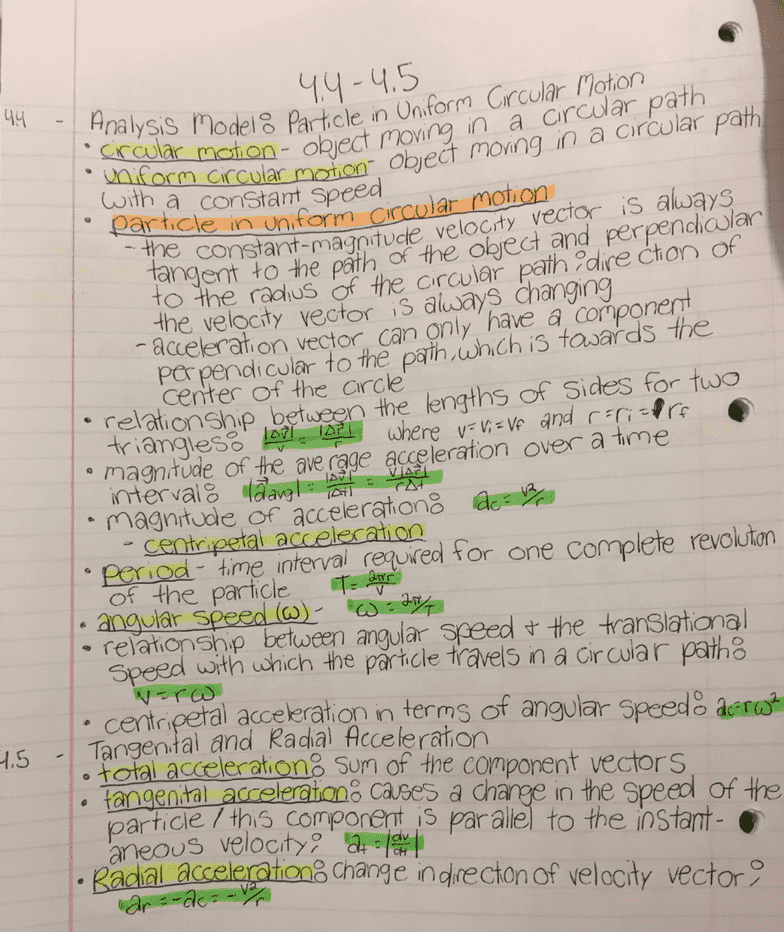 4.4-4.5
44 - Analysis Model: Particle in Uniform Circular Motion
• circular motion - object moving in a circular path
• uniform circular motion - object moving in a circular path
with a constant speed
• particle in uniform circular motion
- the constant-magnitude velocity vector is always
tangent to the path of the object and perpendicular
to the radius of the circular path; direction of
the velocity vector is always changing
- acceleration vector can only have a component
perpendicular to the path, which is towards the
center of the circle
• relationship between the lengths of sides for two
triangles: |Δv⃗|/v = |Δr⃗|/r where v=vi=vf and r=ri=rf
• magnitude of the average acceleration over a time
interval: |a⃗avg| = |Δv⃗|/|Δt| = v|Δr⃗|/rΔt
• magnitude of acceleration: ac = v²/r
- centripetal acceleration
• period - time interval required for one complete revolution
of the particle T = 2πr/v
• angular speed (ω) - ω = 2π/T
• relationship between angular speed + the translational
speed with which the particle travels in a circular path:
v = rω
• centripetal acceleration in terms of angular speed: ac=rω²
4.5 - Tangenital and Radial Acceleration
• total acceleration: sum of the component vectors
• tangenital acceleration: causes a change in the speed of the
particle / this component is parallel to the instant-
aneous velocity; at = |dv/dt|
• Radial acceleration: change in direction of velocity vector;
ar = -ac = -v²/r